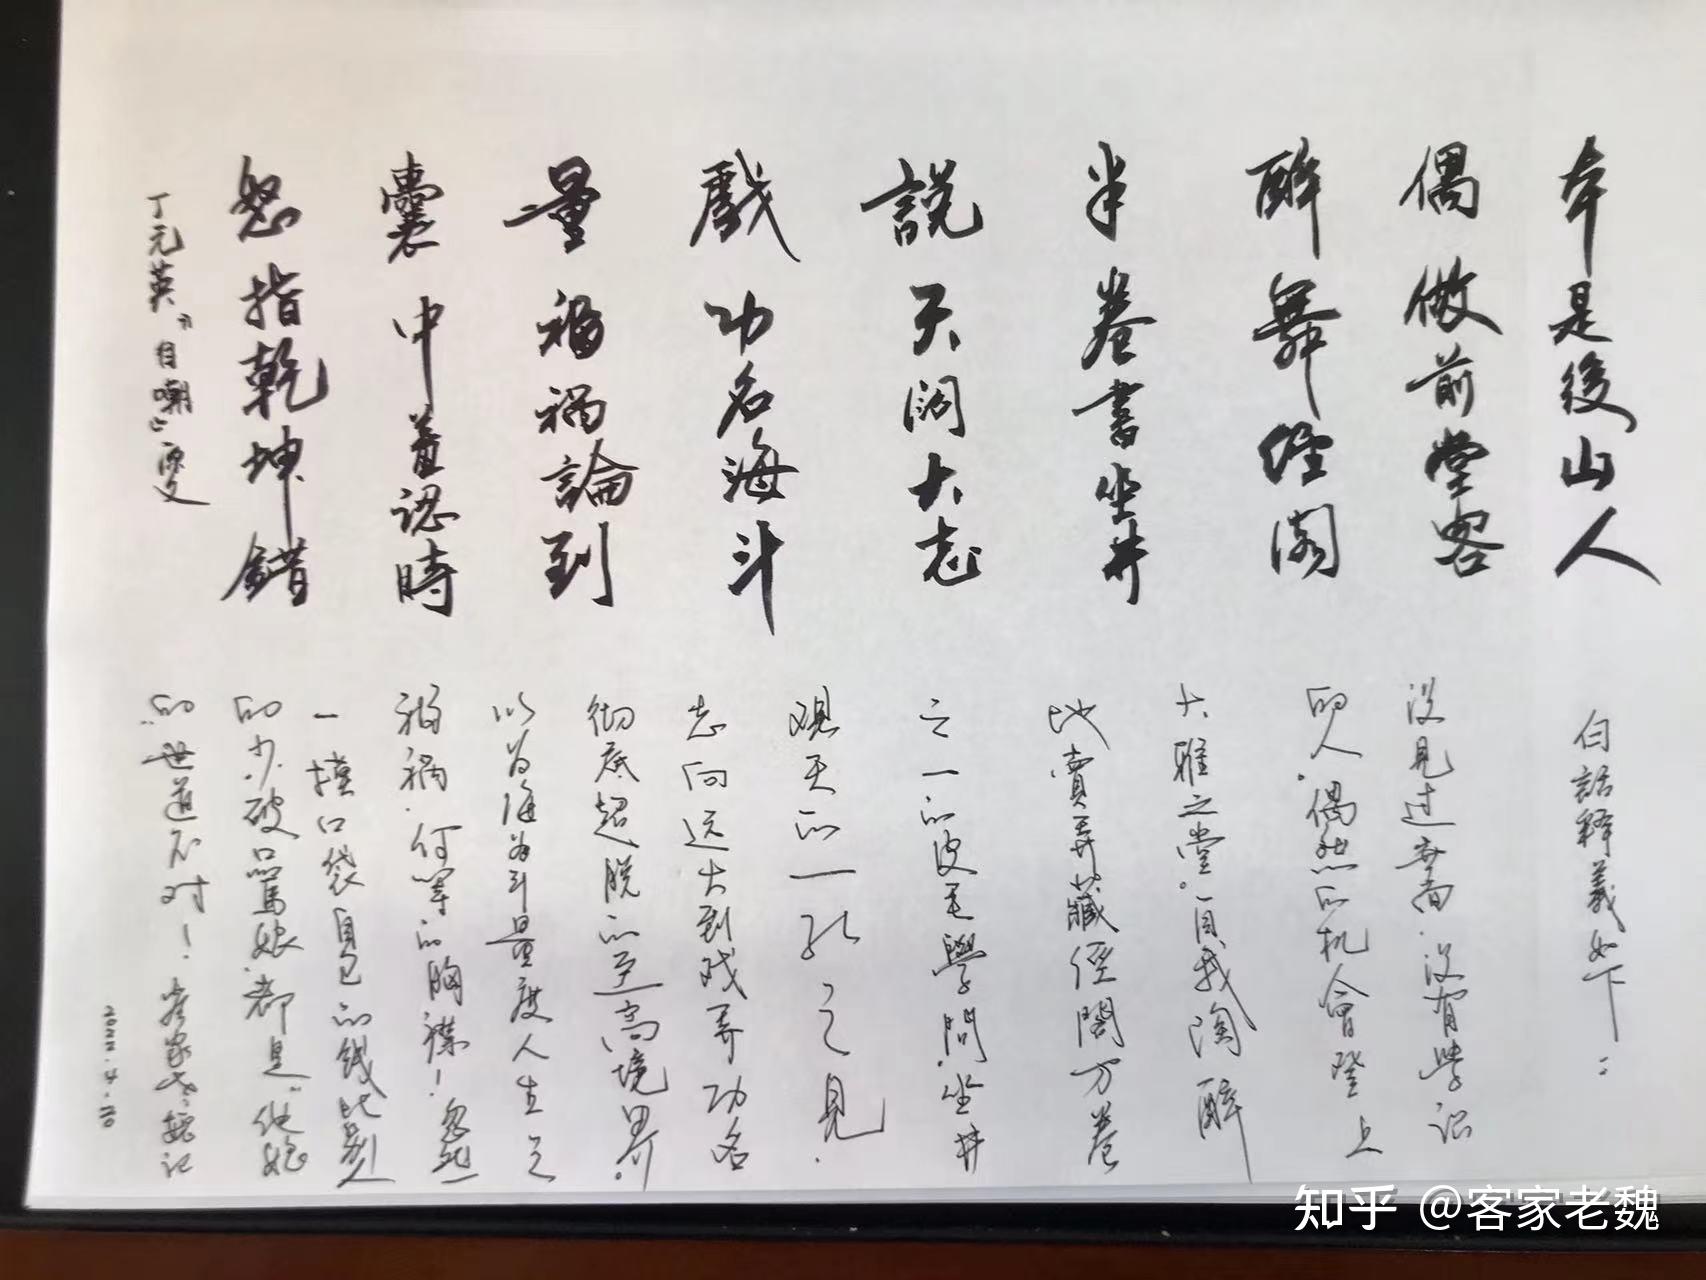 本是後山人
偶做前堂客
醉舞经阁
半卷書坐井
説天阔大志
戲功名海斗
量福祸論到
囊中羞認時
怒指乾坤錯
丁元英"自嘲"
白話释義如下：
没見过世面.没有學识
的人.偶然的机會登上
大雅之堂.自我陶醉
地賣弄藏经閣万卷
之一的皮毛學問.坐井
观天的一孔之見.
志向远大到戏弄功名
彻底超脱的至高境界.
以为海为斗量度人生之
福祸.何等的胸襟！忽然
一摸口袋自己的钱比别人
的少.破口骂娘.都是"他妈
的"世道不对！客家老魏记
2022.4.20
知乎 @客家老魏